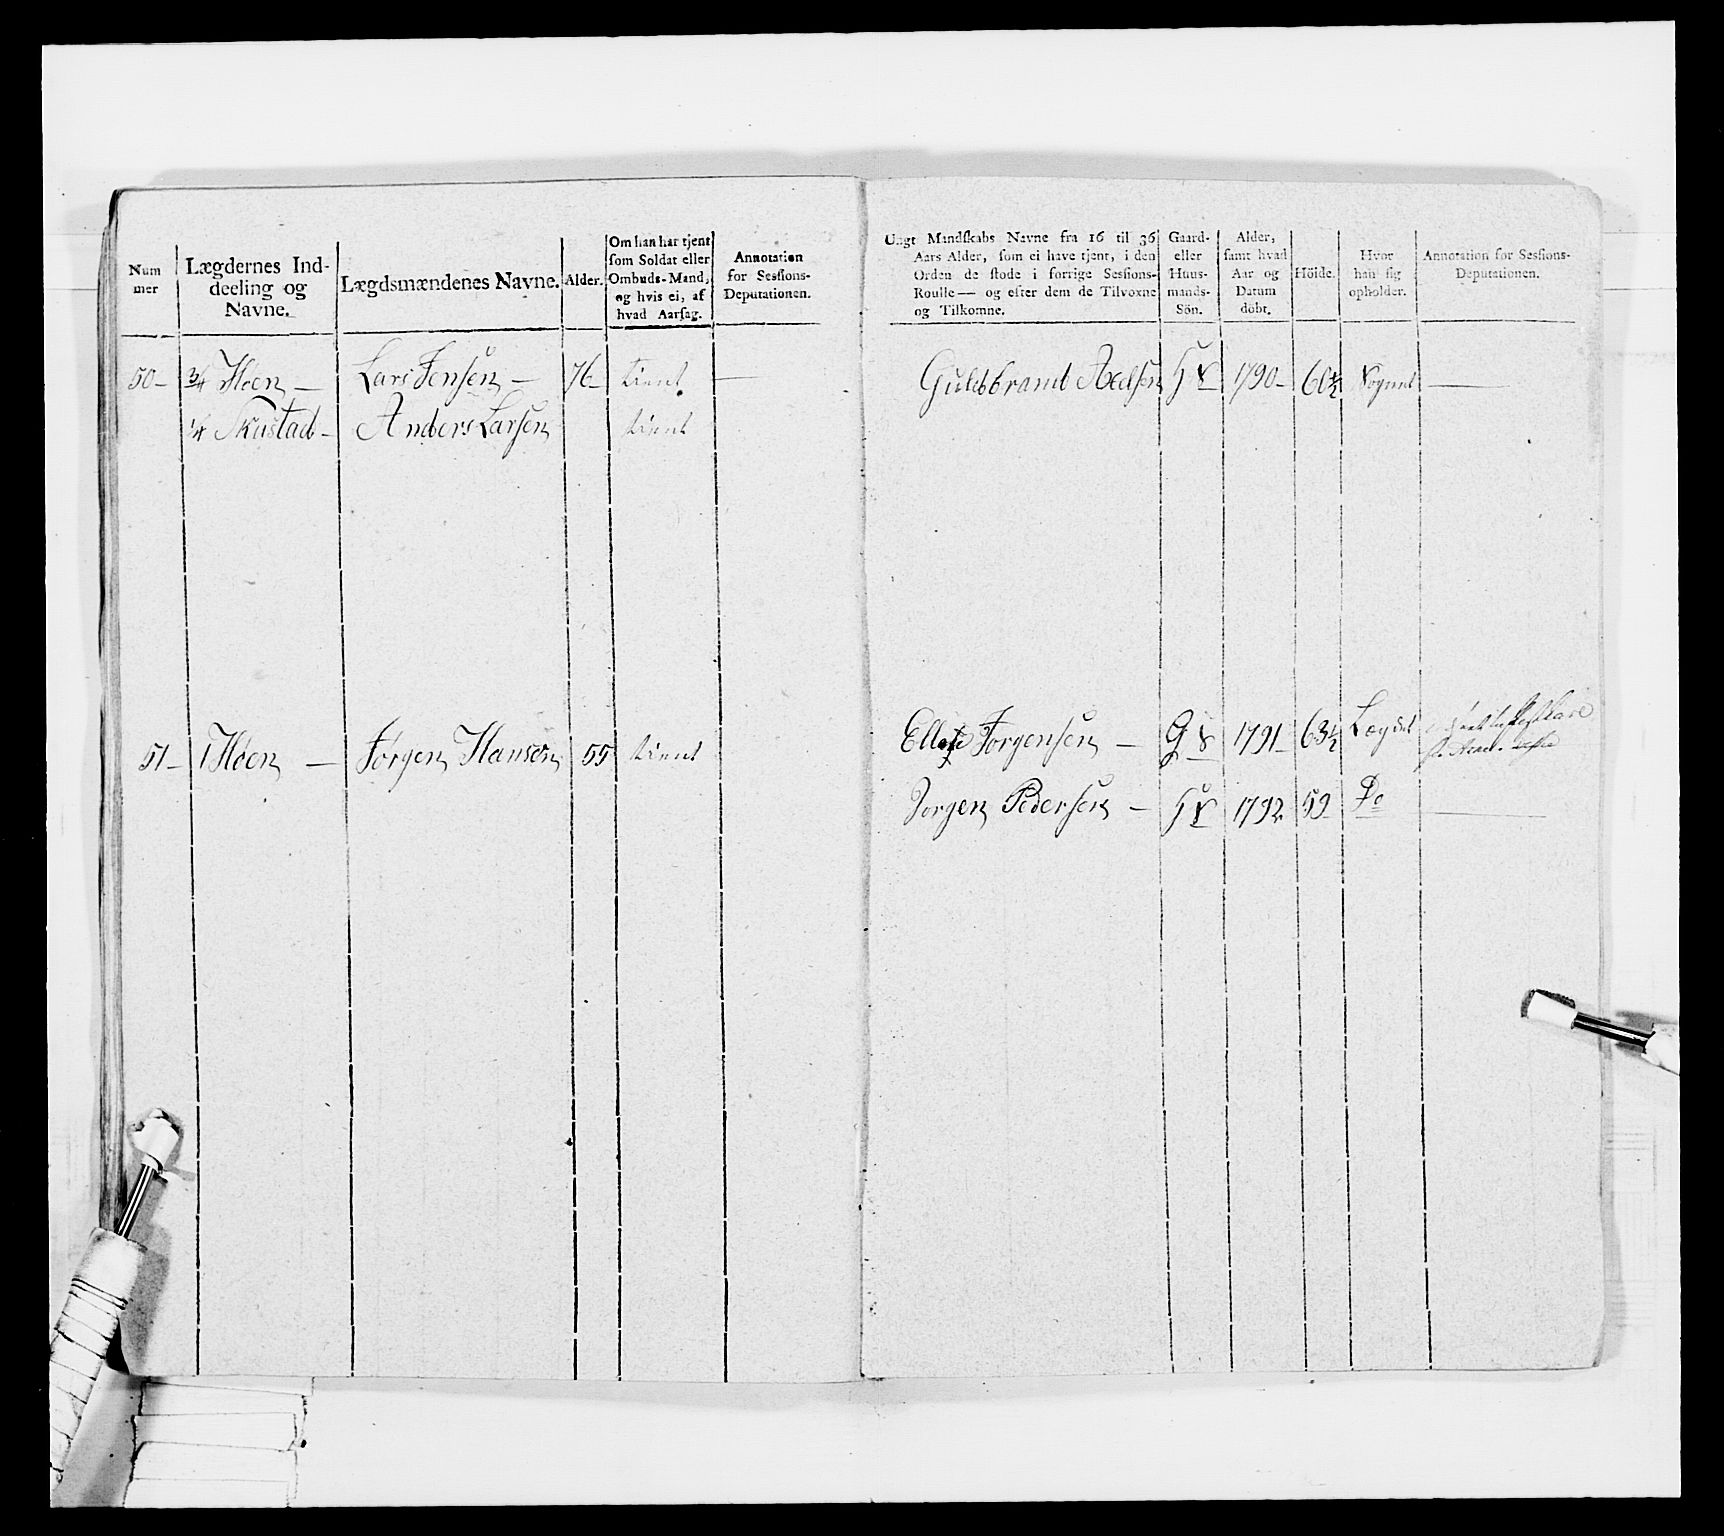 Num mer
Lægdernes Ind-
deeling og
Navne.
Lægdsmændenes Navne.
Alder.
Om han har tjent
som Soldat eller
Ombuds-Mand,
og hvis ei, af
hvad Aarsag.
Annotation
for Sessions-
Deputationen.
Ungt Mandskabs Navne fra 16 til 36
Aars Alder, som ei have tjent, i den
Orden de stode i forrige Sessions-
Roulle — og efter dem de Tilvoxne
og Tilkomne.
Gaard-
eller
Huus-
mands-
Sön.
Alder,
samt hvad
Aar og
Datum
döbt.
Höide.
Hvor
han sig
opholder.
Annotation for Sessions-
Deputationen.
50 – 3/4 Høen — Lars Jensen – 76 – tient —
1/4 Skustad – Anders Larsen tient
Guldbrand Axelsen H S 1790 – 60 1/2 Sognet —
51 – 1 Høen — Jørgen Hansen 55 tient
Ellef Jørgensen — G S 1791 – 63 1/2 Lægdet
Jørgen Pedersen — H S 1792 59 Do —